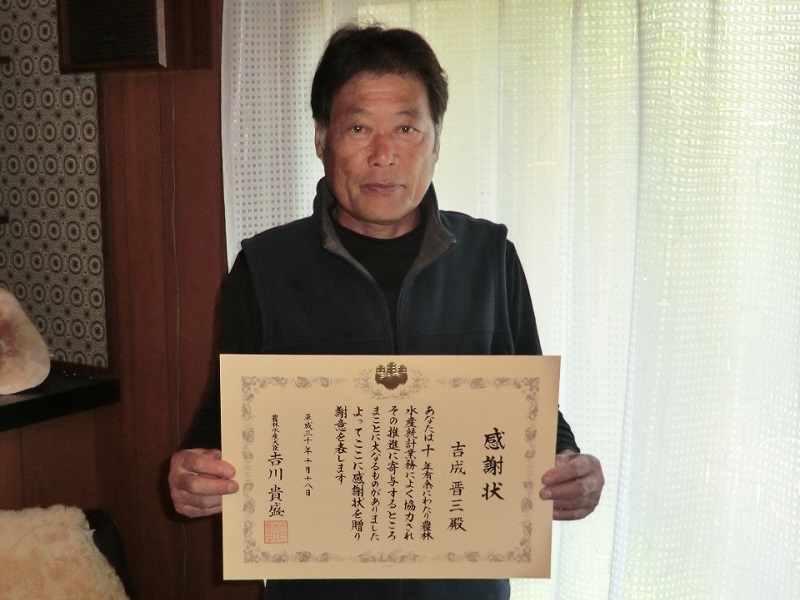 感謝状
吉成晋三殿
あなたは十年有余にわたり農林
水産統計業務によく協力され
その推進に寄与するところ
まことに大なるものがありました
よってここに感謝状を贈り
謝意を表します
平成三十年十月十八日
農林水産大臣 吉川貴盛